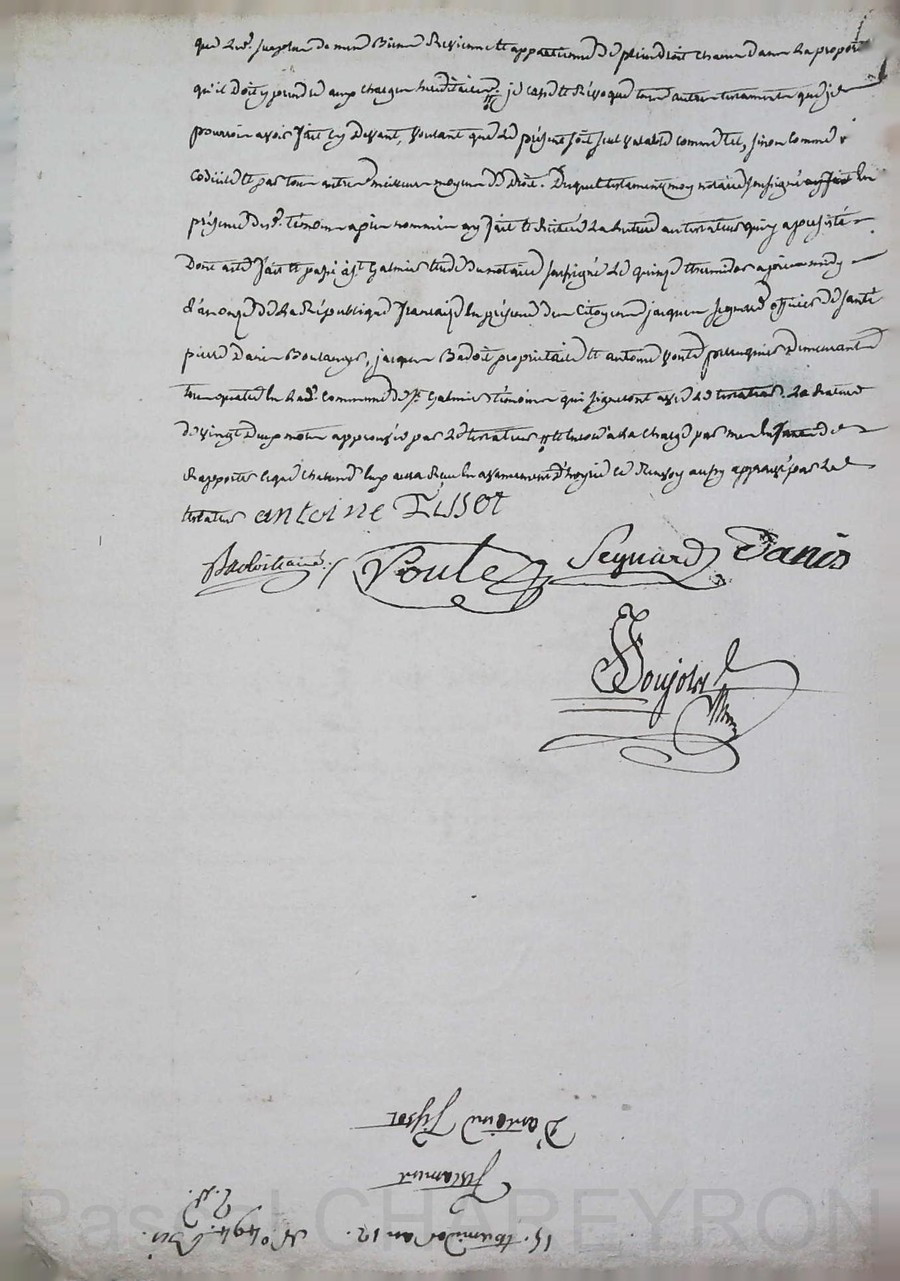 que le surplus de mes Biens Revienne et appartienne de plein droit chacun dans la propor
qu'il doit prendre aux charges héréditaires # je casse et Révoque tous autres testaments que je
pourrois avoir fait cy devant, voulant que le présent soit seul valable comme tel, sinon comme
codicile et par tout autre meilleur moyen de Droit. Duquel testament moy notaire soussigné en
présence des témoins après nommés ay fait et Réitéré la lecture au testateur qui y a persisté
Dont acte fait et passé à St Galmier étude du notaire soussigné le quinze thermidor après midy
l'an onze de la République française en présence des Citoyens jacques Seguard officier de santé
pierre Danis Boulanger, jacques Badoit propriétaire et antoine Voute perruquier demeurants
tous quatre en lad. Commune de St Galmier témoins qui signeront avec le testateur. La Rature
de vingt deux mots approuvée par le testateur # et encore à la charge par mes de
Rapporter ce que chacun d'eux aura Reçu en avancement d'hoyrie ce Renvoy aussy approuvé par le
testateur antoine Tissot
Badoit Voute Seguard Danis
Poujols
15. thermidor an 12. N.° 494
Testament
D'antoine Tissot
Pascal CHAREYRON